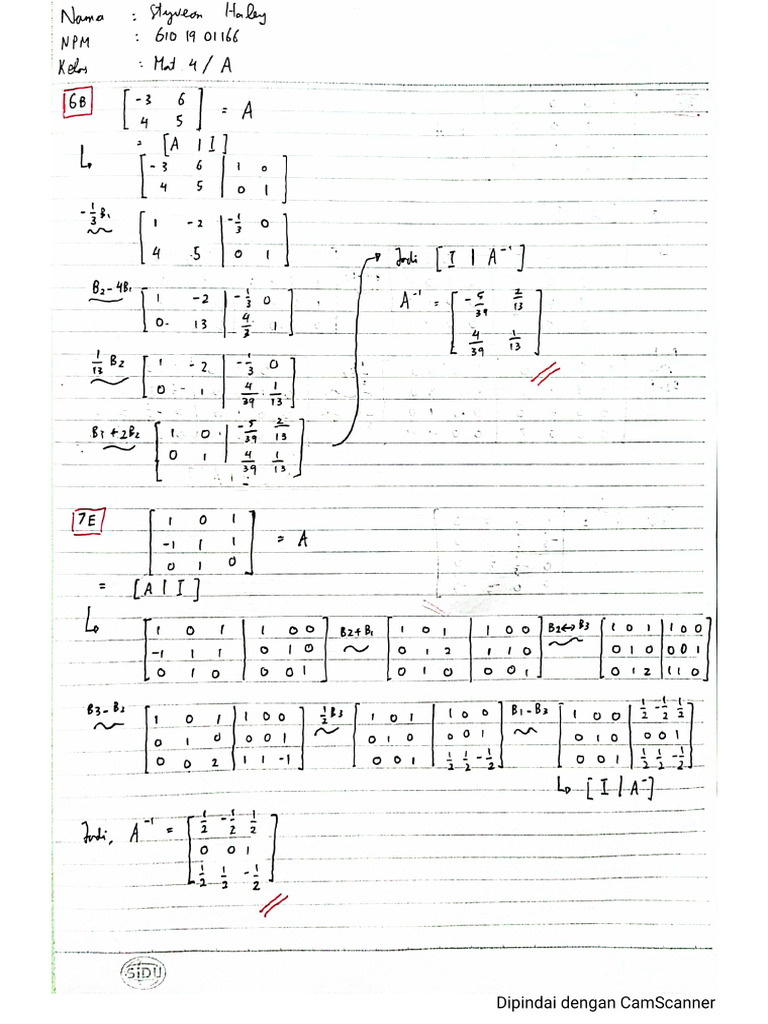 Nama : Styveon Harley
NPM : 610 19 01166
Kelas : Mat 4 / A
6B [ -3 6 ; 4 5 ] = A
= [A | I]
↳ [ -3 6 | 1 0 ; 4 5 | 0 1 ]
-1/3 B1 ~ [ 1 -2 | -1/3 0 ; 4 5 | 0 1 ]
B2-4B1 ~ [ 1 -2 | -1/3 0 ; 0 13 | 4/3 1 ]
1/13 B2 ~ [ 1 -2 | -1/3 0 ; 0 1 | 4/39 1/13 ]
B1+2B2 ~ [ 1 0 | -5/39 2/13 ; 0 1 | 4/39 1/13 ]
→ Jadi [ I | A⁻¹ ]
A⁻¹ = [ -5/39 2/13 ; 4/39 1/13 ]
7E [ 1 0 1 ; -1 1 1 ; 0 1 0 ] = A
= [A | I]
↳ [ 1 0 1 | 1 0 0 ; -1 1 1 | 0 1 0 ; 0 1 0 | 0 0 1 ] B2+B1 ~ [ 1 0 1 | 1 0 0 ; 0 1 2 | 1 1 0 ; 0 1 0 | 0 0 1 ] B2↔B3 ~ [ 1 0 1 | 1 0 0 ; 0 1 0 | 0 0 1 ; 0 1 2 | 1 1 0 ]
B3-B2 ~ [ 1 0 1 | 1 0 0 ; 0 1 0 | 0 0 1 ; 0 0 2 | 1 1 -1 ] 1/2 B3 ~ [ 1 0 1 | 1 0 0 ; 0 1 0 | 0 0 1 ; 0 0 1 | 1/2 1/2 -1/2 ] B1-B3 ~ [ 1 0 0 | 1/2 -1/2 1/2 ; 0 1 0 | 0 0 1 ; 0 0 1 | 1/2 1/2 -1/2 ]
↳ [ I | A⁻ ]
Jadi, A⁻¹ = [ 1/2 -1/2 1/2 ; 0 0 1 ; 1/2 1/2 -1/2 ]
SiDU
Dipindai dengan CamScanner